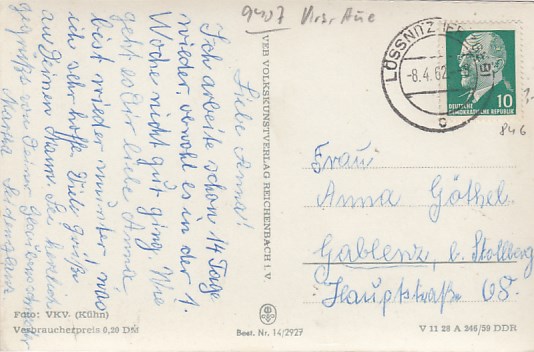 9407 Krs. Aue
Liebe Anna!
Ich arbeite schon 14 Tage
wieder, obwohl es in der 1.
Woche nicht gut ging. Wie
geht es Dir liebe Anna,
bist wieder munter was
ich sehr hoffe. Viele Grüße
an Deinen Mann. Sei herzlich
gegrüßt von Deiner
Martha
Foto: VKV (Kühn)
Verbraucherpreis 0,20 DM
VEB VOLKSKUNSTVERLAG REICHENBACH i. V.
Best. Nr. 14/2927
LÖSSNITZ
-8.4.62
DEUTSCHE
DEMOKRATISCHE REPUBLIK
10
846
Frau
Anna Göthel.
Gablenz, b. Stollberg
Hauptstraße 68.
V 11 28 A 246/59 DDR